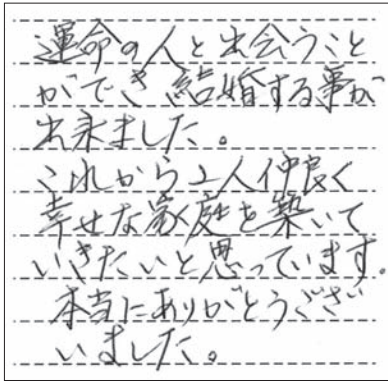 運命の人と出会うこと
ができ結婚する事が
出来ました。
これから二人仲良く
幸せな家庭を築いて
いきたいと思っています。
本当にありがとうござい
いました。